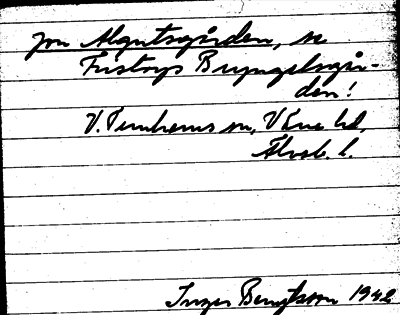 jfr Algutsgården, se
Fustorps Bryngelsgår-
den!
V. Tunhems sn, V Ene hd,
Älvsb. l.
Inger Bengtsson 1942